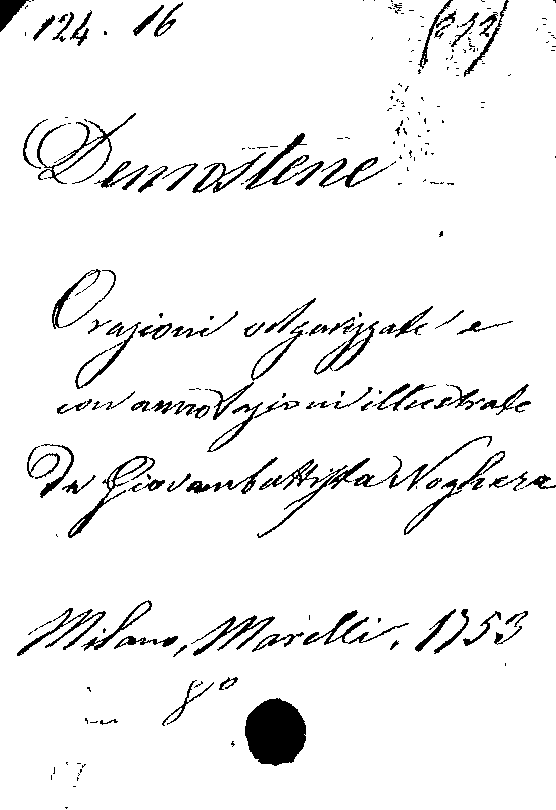 124. 16 (212)
Demostene
Orazioni volgarizzate e
con annotazioni illustrate
Da Giovambattista Noghera
Milano, Marelli, 1753
in 8º